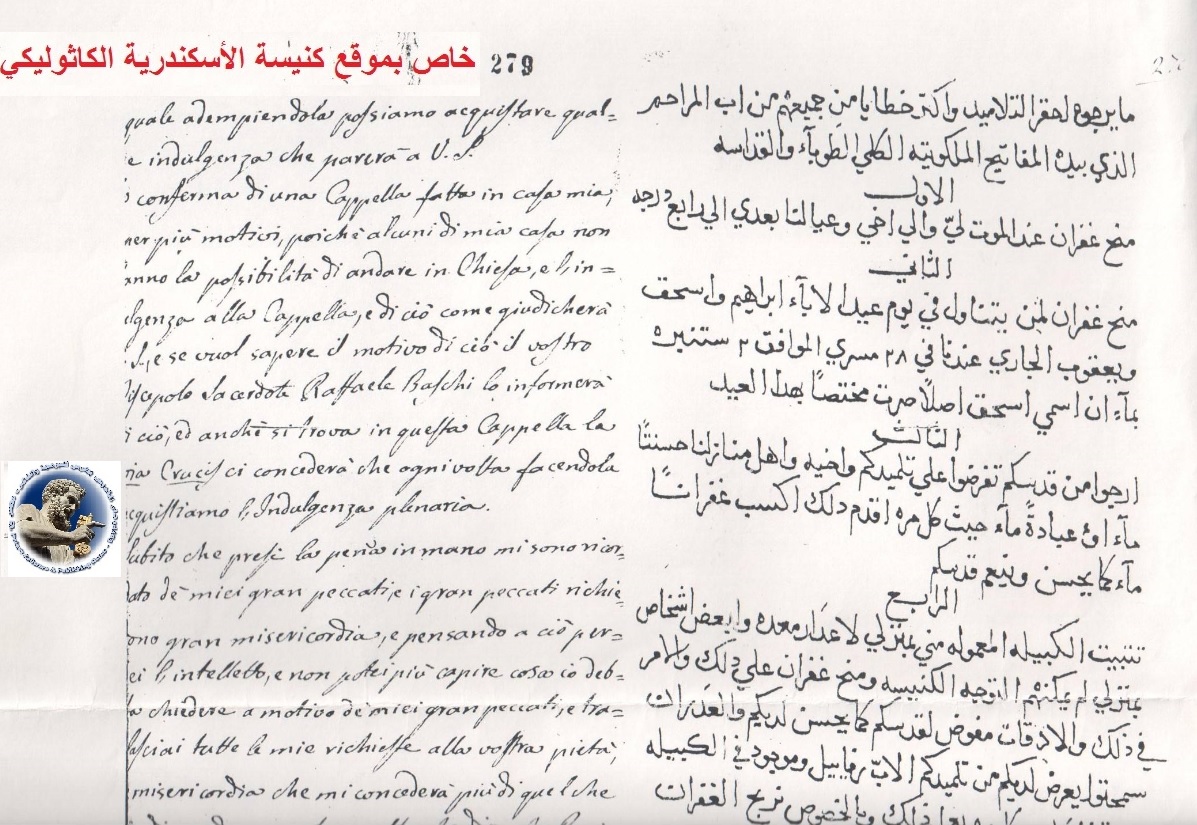 خاص بموقع كنيسة الأسكندرية الكاثوليكي
279
quale adempiendola possiamo acquistare qual=
e indulgenza che parerà a V. S.
conferma di una Cappella fatta in casa mia,
per più motivi, poichè alcuni di mia casa non
anno la possibilità di andare in Chiesa, e l'in=
lgenza alla Cappella, e di ciò come giudicherà
S., e se vuol sapere il motivo di ciò il vostro
iscepolo Sacerdote Raffaele Baschi lo informerà
i ciò, ed anchè si trova in questa Cappella la
ia Crucis ci concederà che ogni volta facendola
cquistiamo l'Indulgenza plenaria.
ubito che presi la penna in mano mi sono ricor=
dato de miei gran peccati, e i gran peccati richie=
ono gran misericordia, e pensando a ciò per=
ei l'intelletto, e non potei più capire cosa io deb=
a chiedere a motivo de miei gran peccati, e tra=
lasciai tutte le mie richieste alla vostra pietà,
misericordia che mi concederà più di quel che
ما يرجوه احقر التلاميد واكتر خطايا من جميعهم من اب المراحم
الذي بيده المفاتيح الملكوتيه الكلي الطوباء والقداسه
الاول
منح غفران عند الموت ليّ والي اخي وعيالنا بعدي الي رابع درجه
التاني
منح غفران لمن يتناول في يوم عيد الاباء ابراهيم واسحق
ويعقوب الجاري عندنا في ٢٨ مسري الموافق ٢ ستنبره
بماء ان اسمي اسحق اصلاً صرت مختصاً بهدا العيد
التالت
ارجوا من قدسكم تفرضوا علي تلميدكم واخيه واهل منازلنا حسنتاً
ماء او عبادةً ماء حيث كل مره اقدم دلك اكسب غفراناً
ماء كما يحسن وينعم قدسكم
الرابع
تتبيت الكبيله المعموله مني بمنزلي لاعدار معده وابعض اشخاص
بمنزلي لم يمكنهم التوجه الكنيسه ومنح غفران علي دلك والامر
في ذلك والاوقات مفوض لقدسكم كما يحسن لديكم والعدرات
سمحتوا يعرض لديكم من تلميدكم الاب رفاييل وموجود في الكبيله